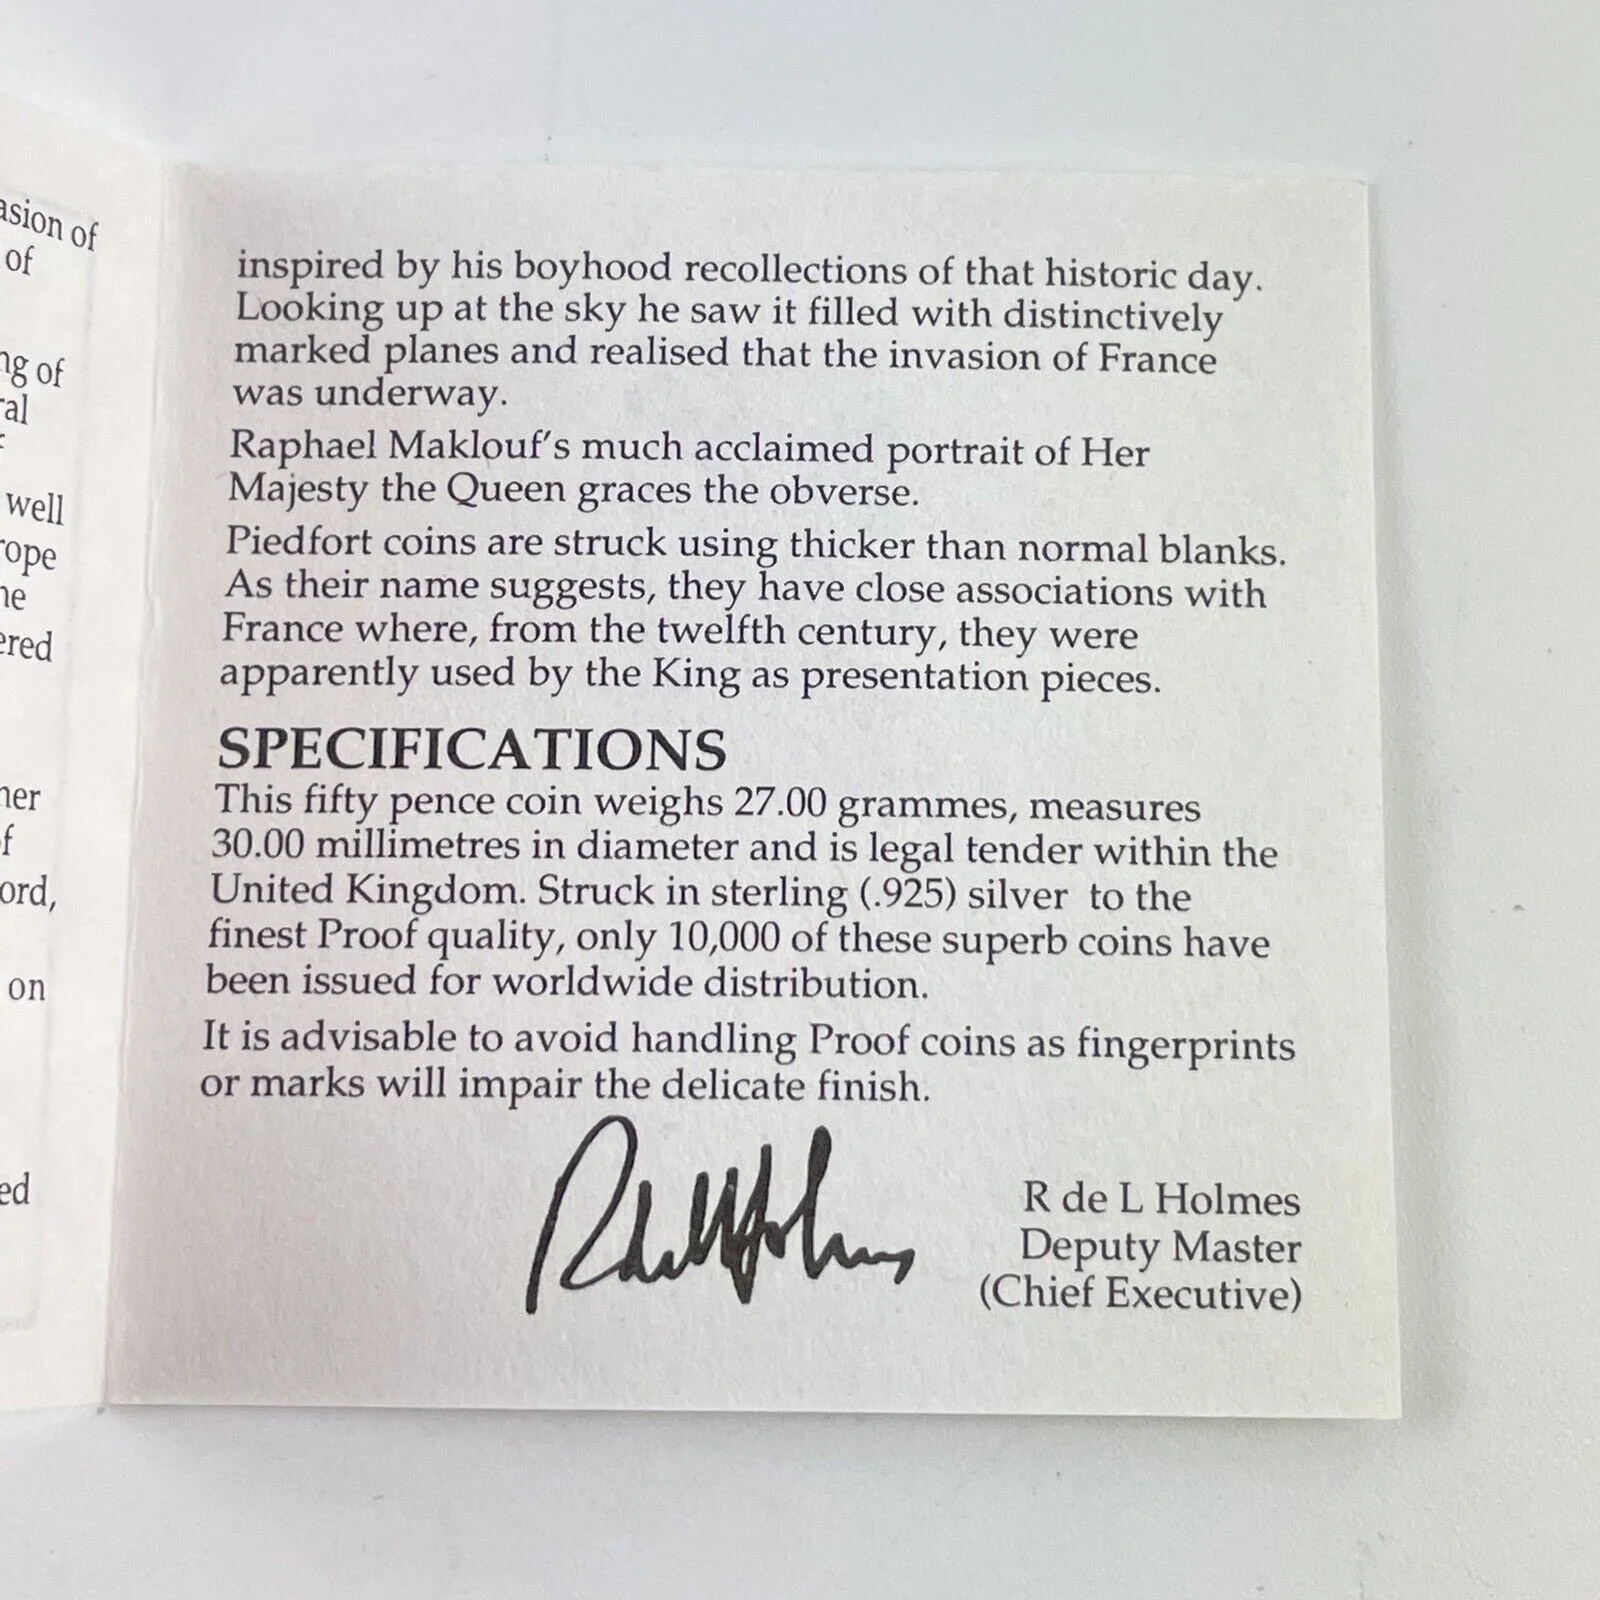 asion of
of
ng of
ral
well
rope
ne
ered
her
of
ord,
on
ed
inspired by his boyhood recollections of that historic day.
Looking up at the sky he saw it filled with distinctively
marked planes and realised that the invasion of France
was underway.
Raphael Maklouf's much acclaimed portrait of Her
Majesty the Queen graces the obverse.
Piedfort coins are struck using thicker than normal blanks.
As their name suggests, they have close associations with
France where, from the twelfth century, they were
apparently used by the King as presentation pieces.
SPECIFICATIONS
This fifty pence coin weighs 27.00 grammes, measures
30.00 millimetres in diameter and is legal tender within the
United Kingdom. Struck in sterling (.925) silver to the
finest Proof quality, only 10,000 of these superb coins have
been issued for worldwide distribution.
It is advisable to avoid handling Proof coins as fingerprints
or marks will impair the delicate finish.
R de L Holmes
Deputy Master
(Chief Executive)